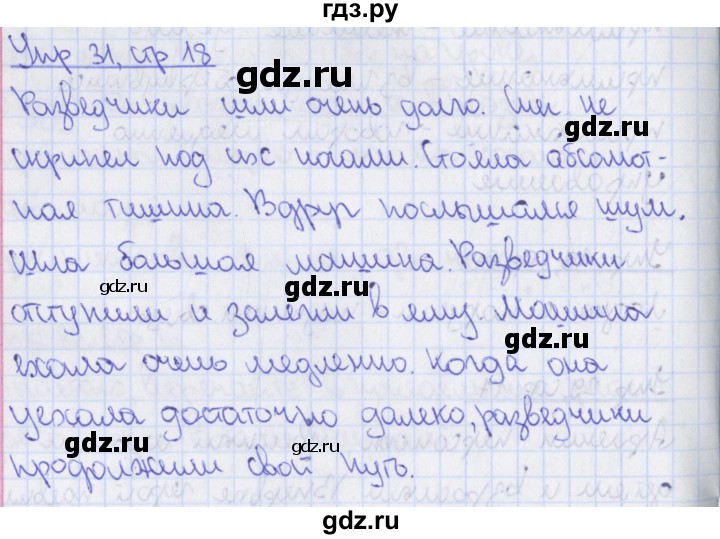 гдз.ру
Упр 31, стр 18
gdz.ru
Разведчики шли очень долго. Снег не
gdz.ru
скрипел под их ногами. Стояла абсолют-
ная тишина. Вдруг послышался шум.
Шла большая машина. Разведчики
gdz.ru
gdz.ru
отступили и залегли в яму. Машина
gdz.ru
ехала очень медленно. Когда она
уехала достаточно далеко, разведчики
gdz.ru
gdz.ru
продолжили свой путь.
gdz.ru